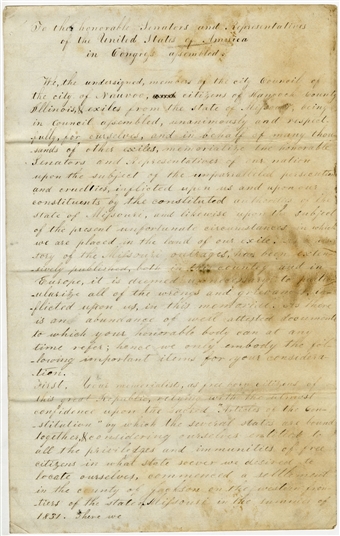 To the honorable Senators and Representatives
of the United States of America
in Congress assembled.
We, the undersigned, members of the city Council of
the city of Nauvoo, citizens of Hancock County
Illinois, & exiles from the state of Missouri, being
in council assembled, unanimously and respect-
fully, for ourselves, and in behalf of many thou-
sands of other exiles, memorialize the honorable
Senators and Representatives of our nation
upon the subject of the unparalleled persecutions
and cruelties, inflicted upon us and upon our
constituents by the constituted authorities of the
state of Missouri, and likewise upon the subject
of the present unfortunate circumstances in which
we are placed in the land of our exile. As a his-
tory of the Missouri outrages, has been exten-
sively published, both in this country and in
Europe, it is deemed unnecessary to partic-
ularize all of the wrongs and grievances in-
flicted upon us, in this memorial. As there
is an abundance of well attested documents
to which your honorable body can at any
time refer; hence we only embody the fol-
lowing important items for your considera-
tion.
First. Your memorialists, as free born citizens of
this great Republic, relying with the utmost
confidence upon the sacred "Articles of the Con-
stitution" by which the several states are bound
together, & considering ourselves entitled to
all the priviledges and immunities of free
citizens in what state soever we desired to
locate ourselves, commenced a settlement
in the county of Jackson on the western fron-
tiers of the state of Missouri in the summer of
1831. There we